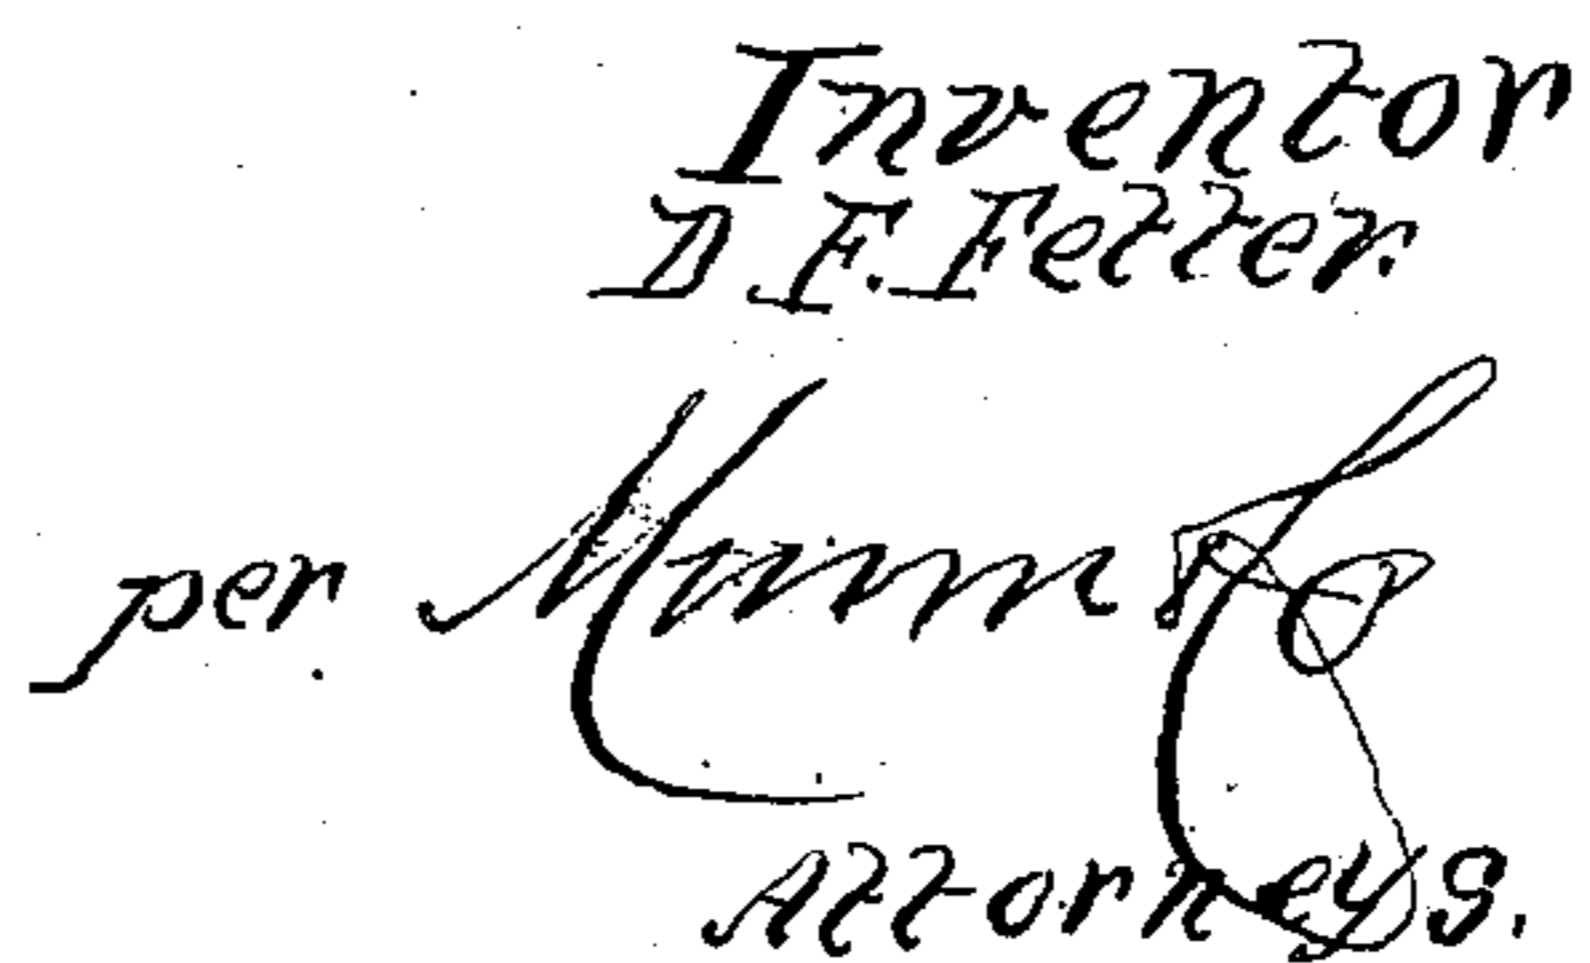 Inventor
D. F. Fetter.
per Munn & Co
Attorneys.